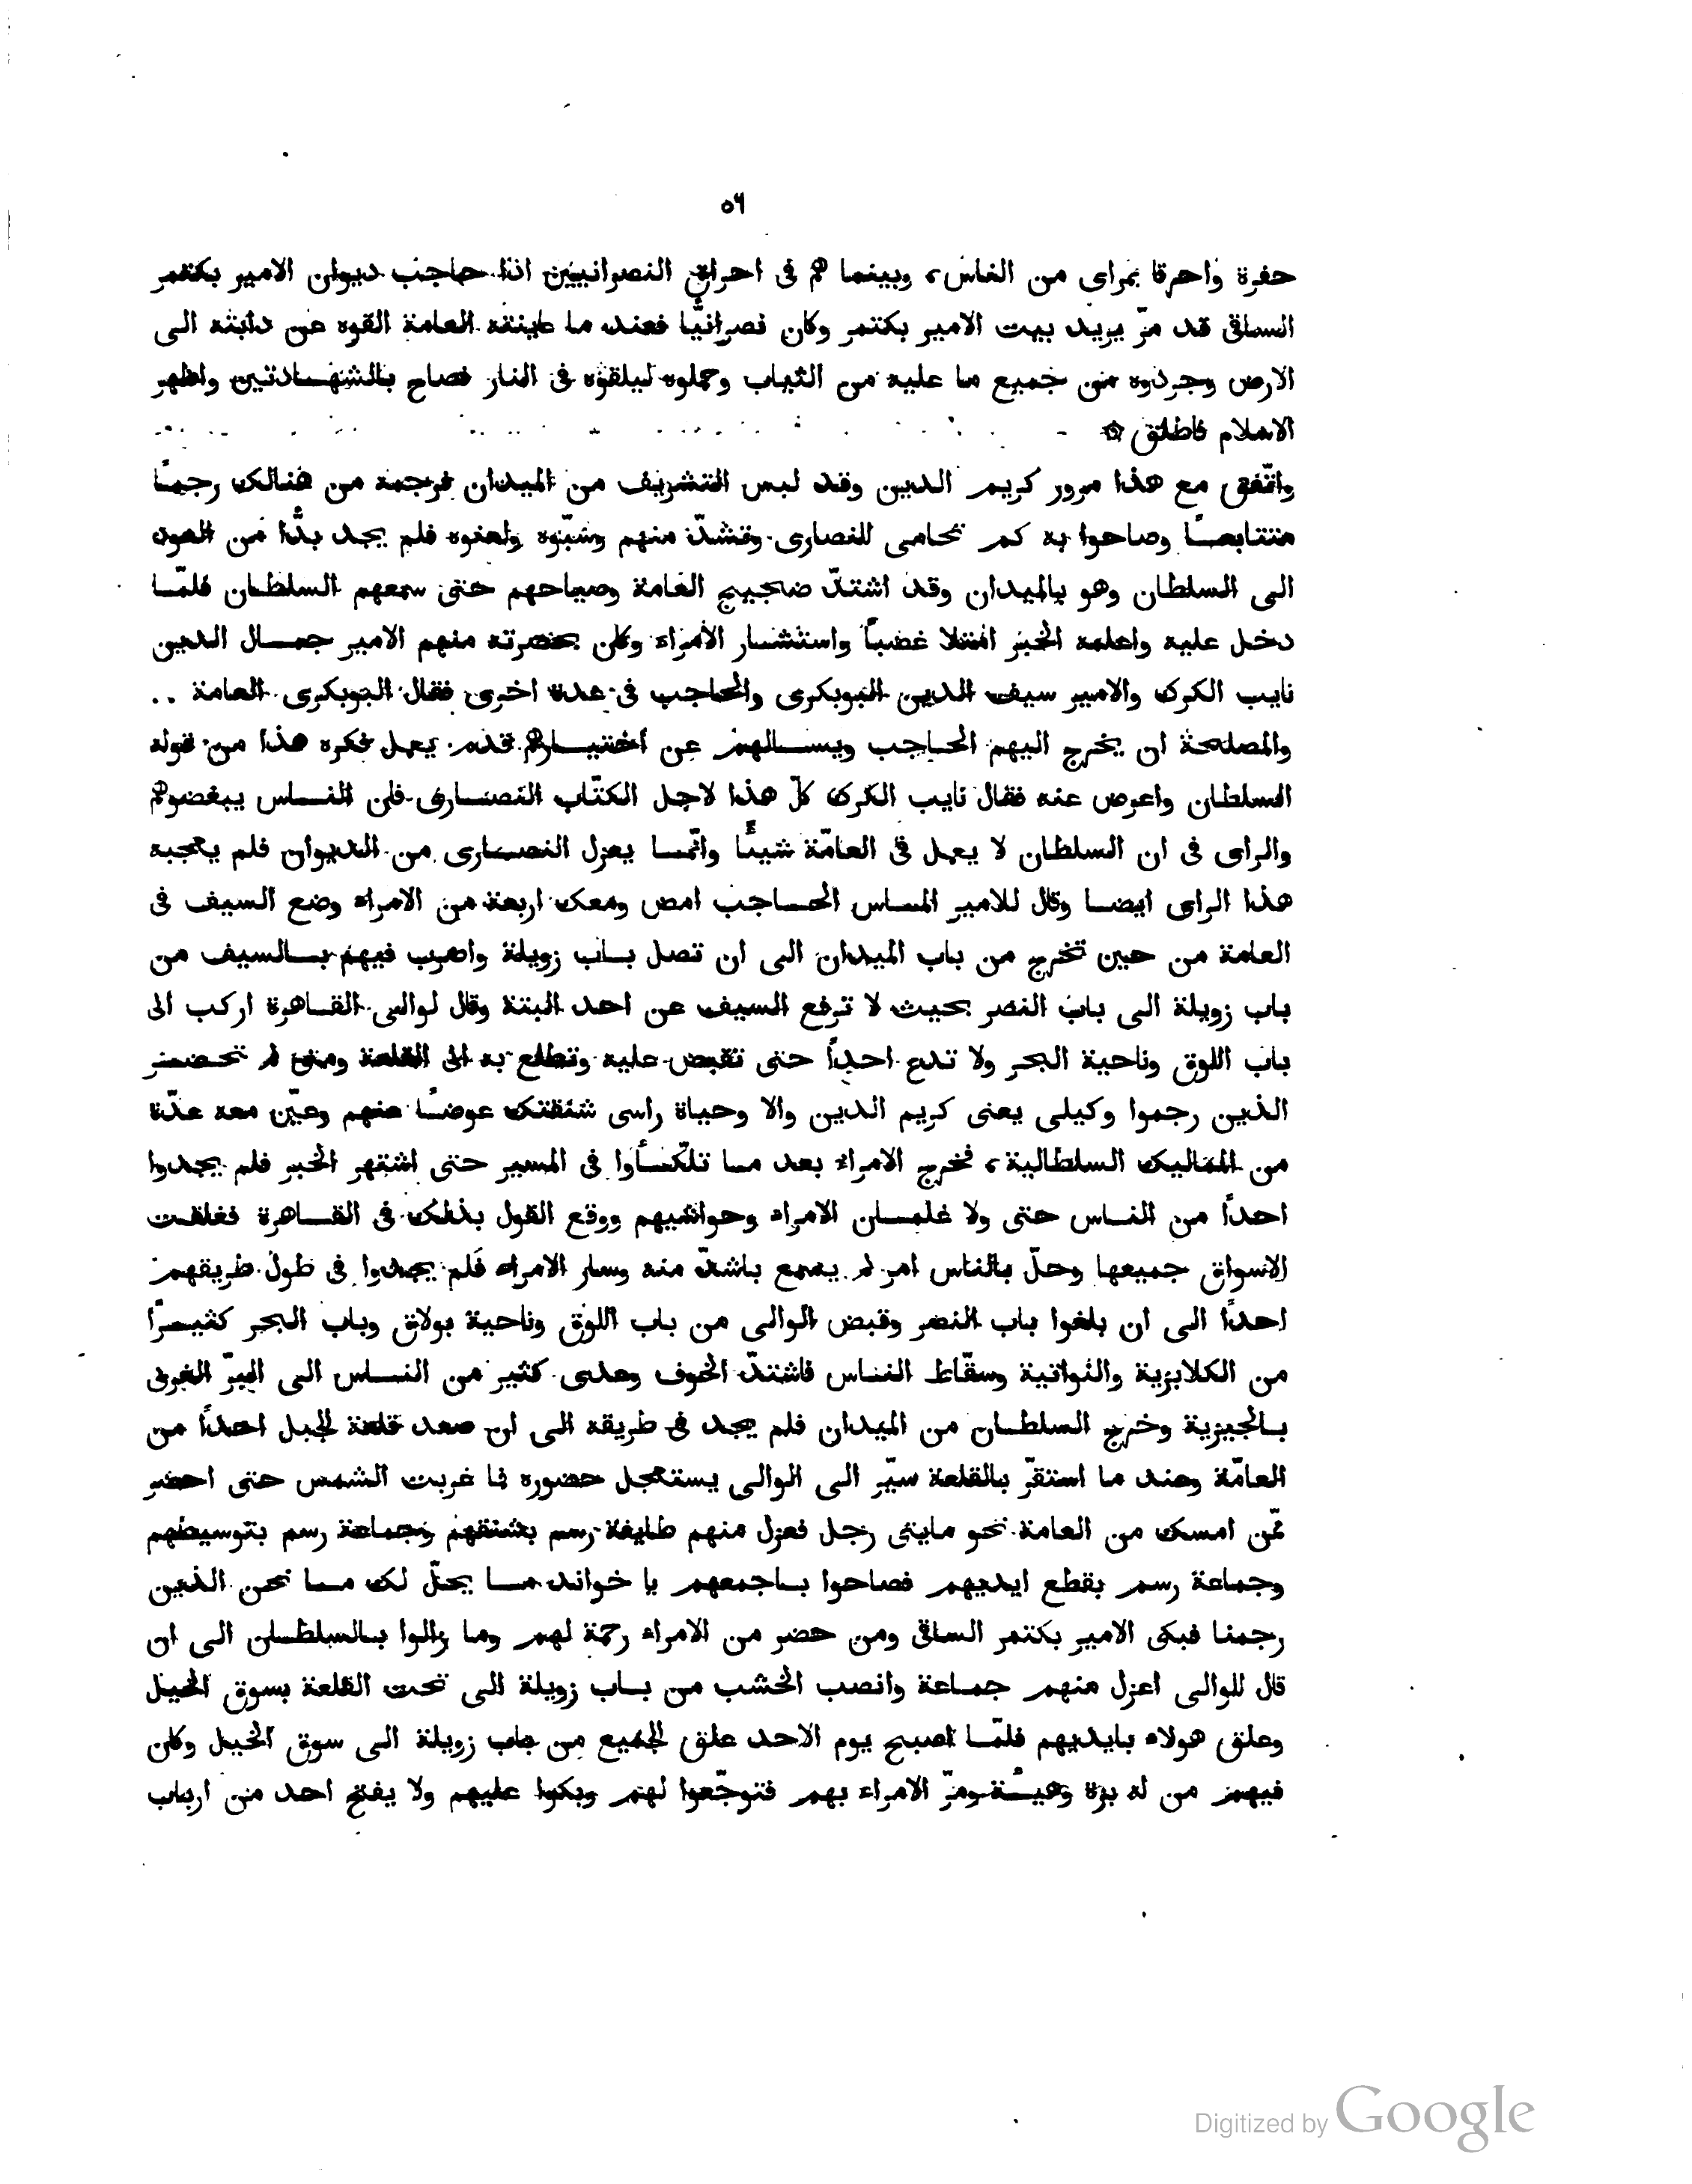 ٥٦
حفرة واحرقا بمراى من الناس، وبينما هم فى احراق النصرانيين اذا حاجب ديوان الامير بكتمر
الساقى قد مرّ يريد بيت الامير بكتمر وكان نصرانيًّا فعند ما عاينته العامة القوه عن دابته الى
الارض وجردوه من جميع ما عليه من الثياب وحملوه ليلقوه فى النار فصاح بالشهادتين واظهر
الاسلام فاطلق ۞
واتّفق مع هذا مرور كريم الدين وقد لبس التشريف من الميدان فرجمه من هنالك رجمًا
متتابعًا وصاحوا به كم تحامى للنصارى وتشدّ منهم وسبّوه ولعنوه فلم يجد بدًّا من العود
الى السلطان وهو بالميدان وقد اشتدّ ضجيج العامة وصياحهم حتى سمعهم السلطان فلمّا
دخل عليه واعلمه الخبر امتلا غضبًا واستشار الأمراء وكان بحضرته منهم الامير جمال الدين
نايب الكرك والامير سيف الدين البوبكرى والحاجب فى عدة اخرى فقال البوبكرى العامة ..
والمصلحة ان يخرج اليهم الحاجب ويسالهم عن اختيارهم قدم يعمل فكره هذا من قوله
السلطان واعرض عنه فقال نايب الكرك كلّ هذا لاجل الكتّاب النصارى فان الناس يبغضوهم
والراى فى ان السلطان لا يعمل فى العامّة شيئًا وانّما يعزل النصارى من الديوان فلم يعجبه
هذا الراى ايضا وقال للامير الماس الحاجب امض ومعك اربعة من الامراء وضع السيف فى
العامة من حين تخرج من باب الميدان الى ان تصل باب زويلة واضرب فيهم بالسيف من
باب زويلة الى باب النصر بحيث لا ترفع السيف عن احد البتة وقال لوالى القاهرة اركب الى
باب اللوق وناحية البحر ولا تدع احدًا حتى تقبض عليه وتطلع به الى القلعة ومتى لم تحضر
الذين رجموا وكيلى يعنى كريم الدين والا وحياة راسى شنقتك عوضًا عنهم وعيّن معه عدّة
من المماليك السلطانية، فخرج الامراء بعد ما تلكّأوا فى المسير حتى اشتهر الخبر فلم يجدوا
احدًا من الناس حتى ولا غلمان الامراء وحواشيهم ووقع القول بذلك فى القاهرة فغلقت
الاسواق جميعها وحلّ بالناس امر لم يسمع باشدّ منه وسار الامراء فلم يجدوا فى طول طريقهم
احدًا الى ان بلغوا باب النصر وقبض الوالى من باب اللوق وناحية بولاق وباب البحر كثيرًا
من الكلابزية والنواتية وسقّاط الناس فاشتدّ الخوف وعدى كثير من الناس الى البرّ الغربى
بالجيزية وخرج السلطان من الميدان فلم يجد فى طريقه الى ان صعد قلعة الجبل احدًا من
العامّة وعند ما استقرّ بالقلعة سيّر الى الوالى يستعجل حضوره فما غربت الشمس حتى احضر
ممّن امسك من العامة نحو مايتى رجل فعزل منهم طايفة رسم بشنقهم وجماعة رسم بتوسيطهم
وجماعة رسم بقطع ايديهم فصاحوا باجمعهم يا خوند ما يحلّ لك ما نحن الذين
رجمنا فبكى الامير بكتمر الساقى ومن حضر من الامراء رحمة لهم وما زالوا بالسلطان الى ان
قال للوالى اعزل منهم جماعة وانصب الخشب من باب زويلة الى تحت القلعة بسوق الخيل
وعلق هولاء بايديهم فلمّا اصبح يوم الاحد علق الجميع من باب زويلة الى سوق الخيل وكان
فيهم من له بزة وهيئة ومرّ الامراء بهم فتوجّعوا لهم وبكوا عليهم ولا يفتح احد من ارباب
Digitized by Google